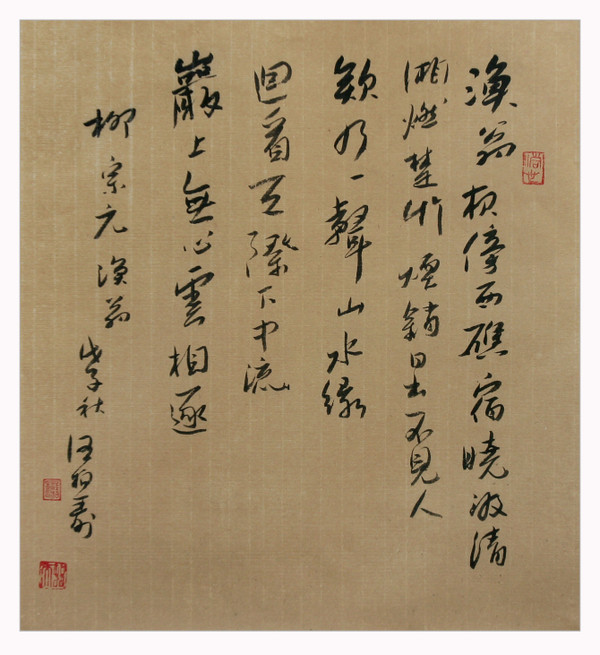 漁翁夜傍西礁宿曉汲清
湘燃楚竹煙銷日出不見人
欸乃一聲山水緑
回看天際下中流
巖上無心雲相逐
柳宗元漁翁
戊子秋